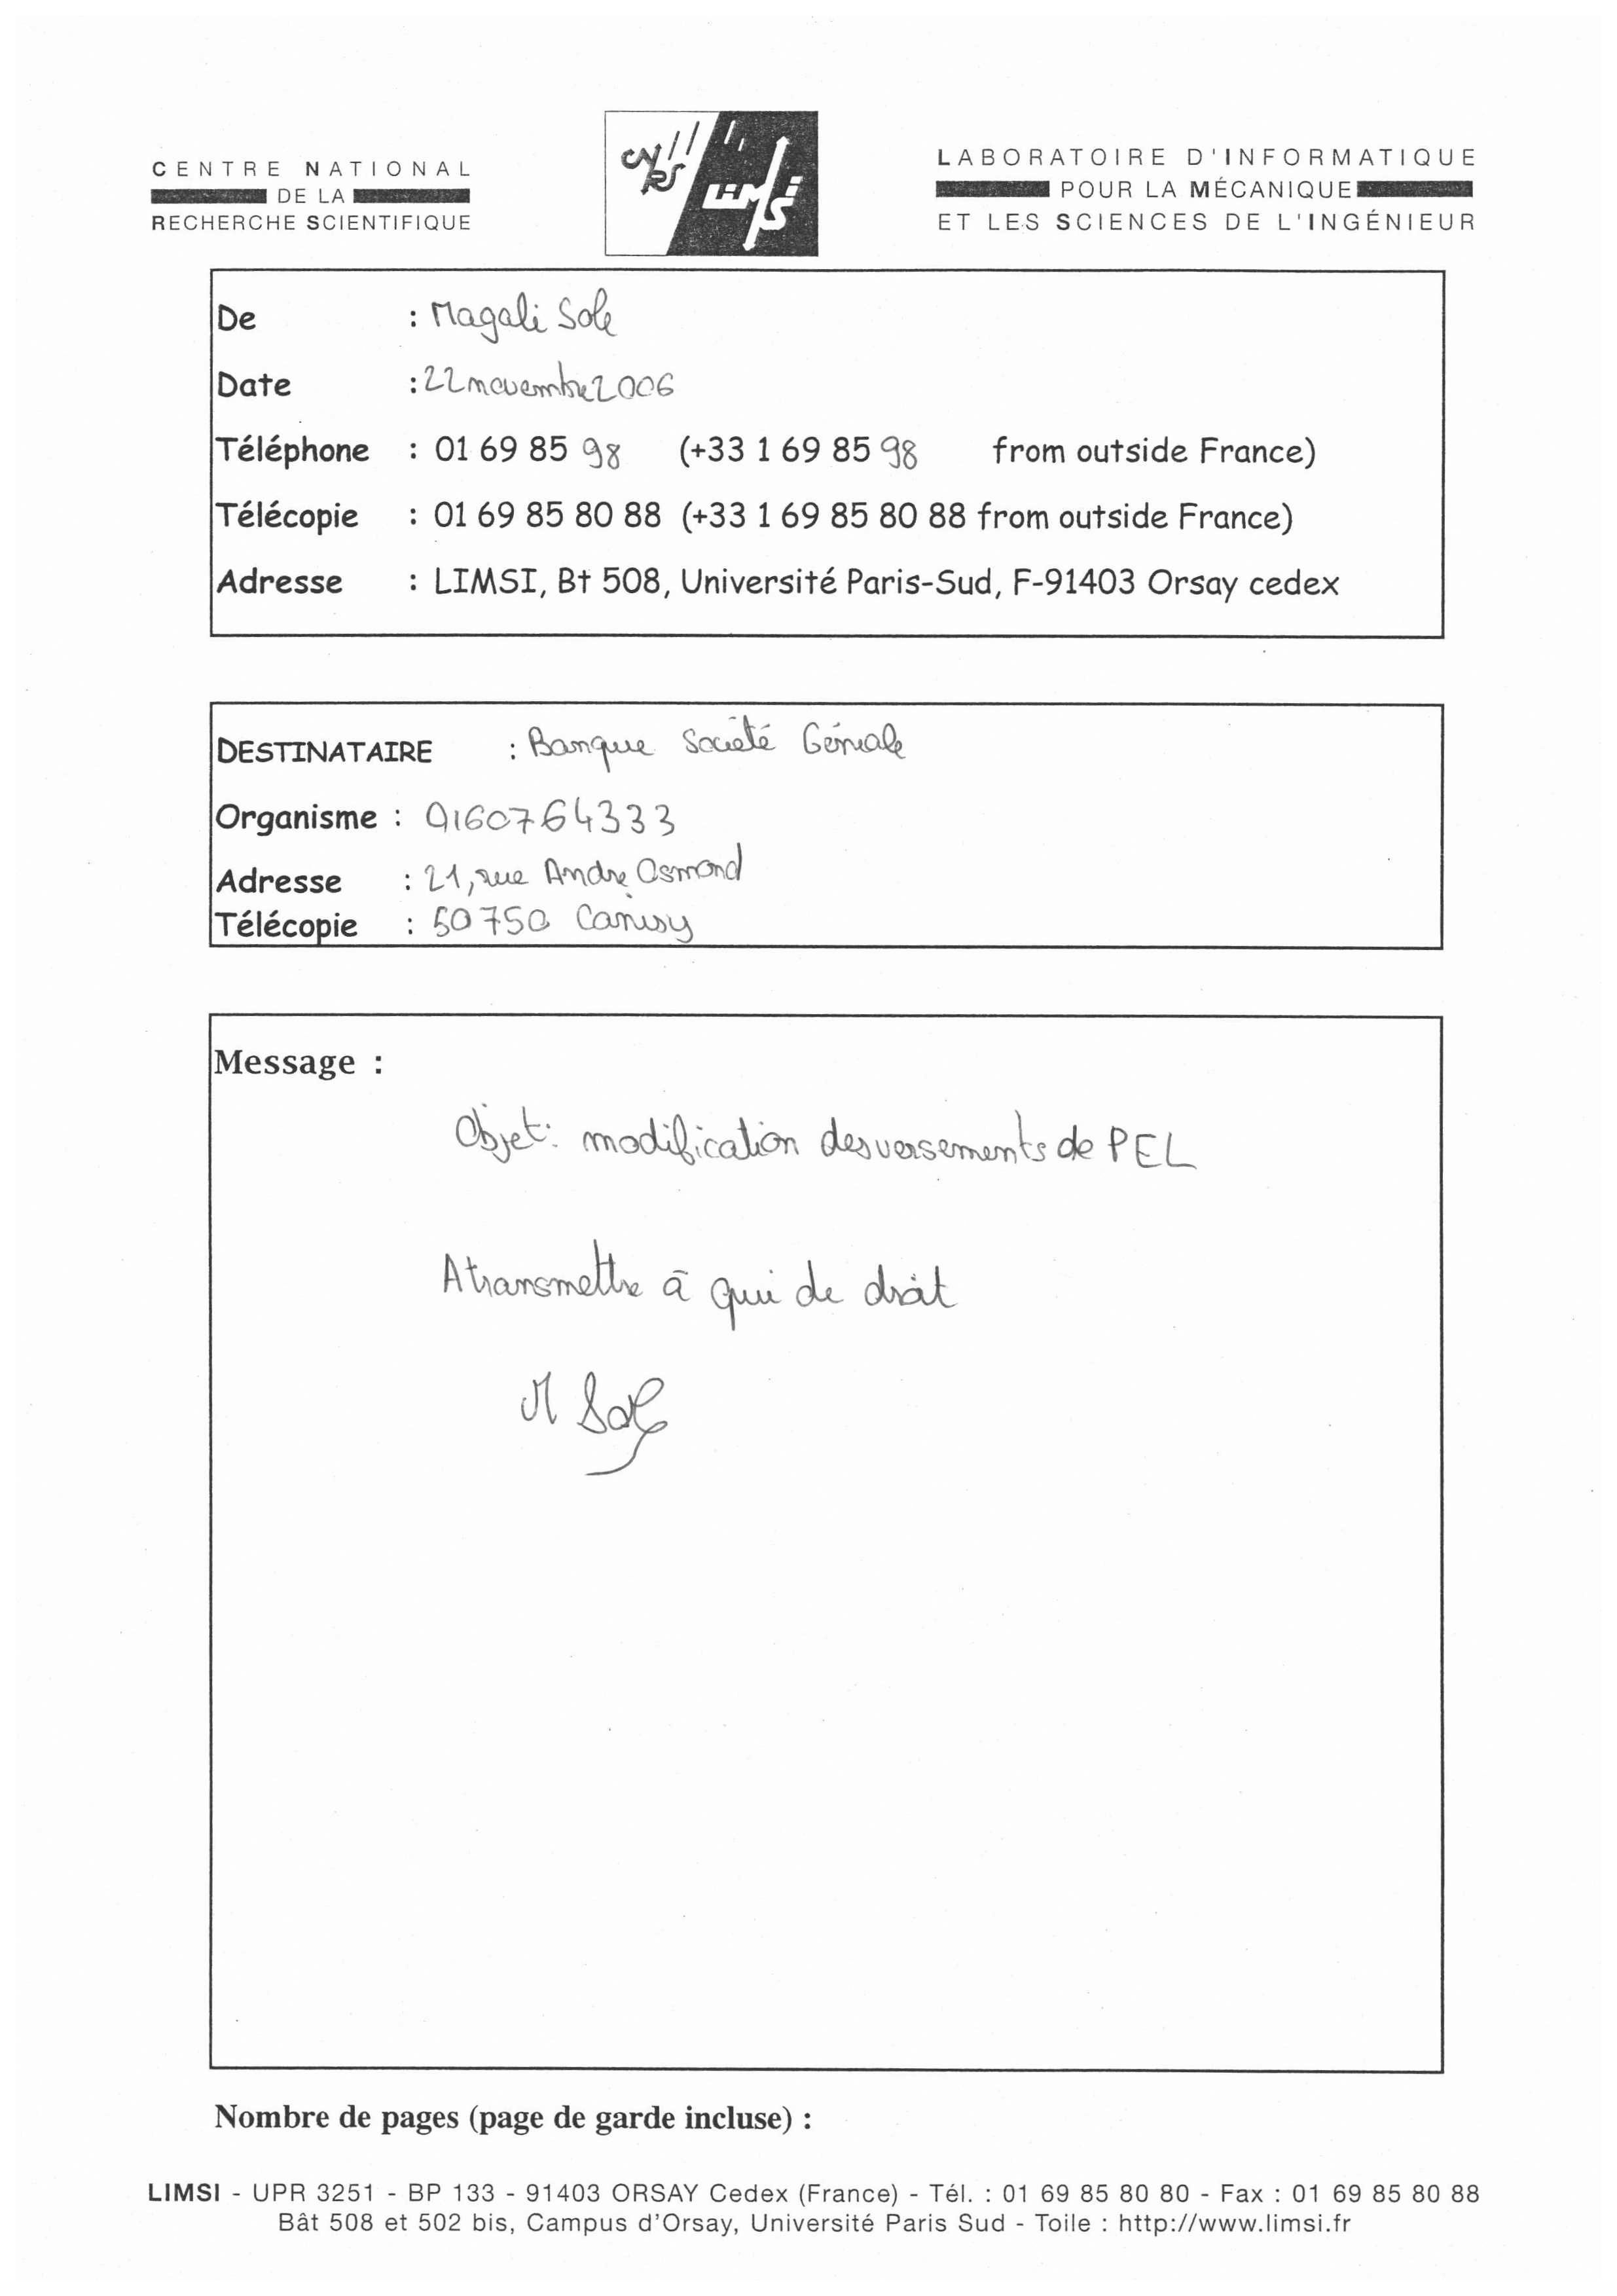 CENTRE NATIONAL
DE LA
RECHERCHE SCIENTIFIQUE
CNRS
LIMSI
LABORATOIRE D'INFORMATIQUE
POUR LA MÉCANIQUE
ET LES SCIENCES DE L'INGÉNIEUR
De : Magali Sole
Date : 22 novembre 2006
Téléphone : 01 69 85 98 (+33 1 69 85 98 from outside France)
Télécopie : 01 69 85 80 88 (+33 1 69 85 80 88 from outside France)
Adresse : LIMSI, Bt 508, Université Paris-Sud, F-91403 Orsay cedex
DESTINATAIRE : Banque Société Géniale
Organisme : 0160764333
Adresse : 21, rue André Osmond
Télécopie : 50750 Canisy
Message :
Objet: modification des versements de PEL
A transmettre à qui de droit
M Sole
Nombre de pages (page de garde incluse) :
LIMSI - UPR 3251 - BP 133 - 91403 ORSAY Cedex (France) - Tél. : 01 69 85 80 80 - Fax : 01 69 85 80 88
Bât 508 et 502 bis, Campus d'Orsay, Université Paris Sud - Toile : http://www.limsi.fr